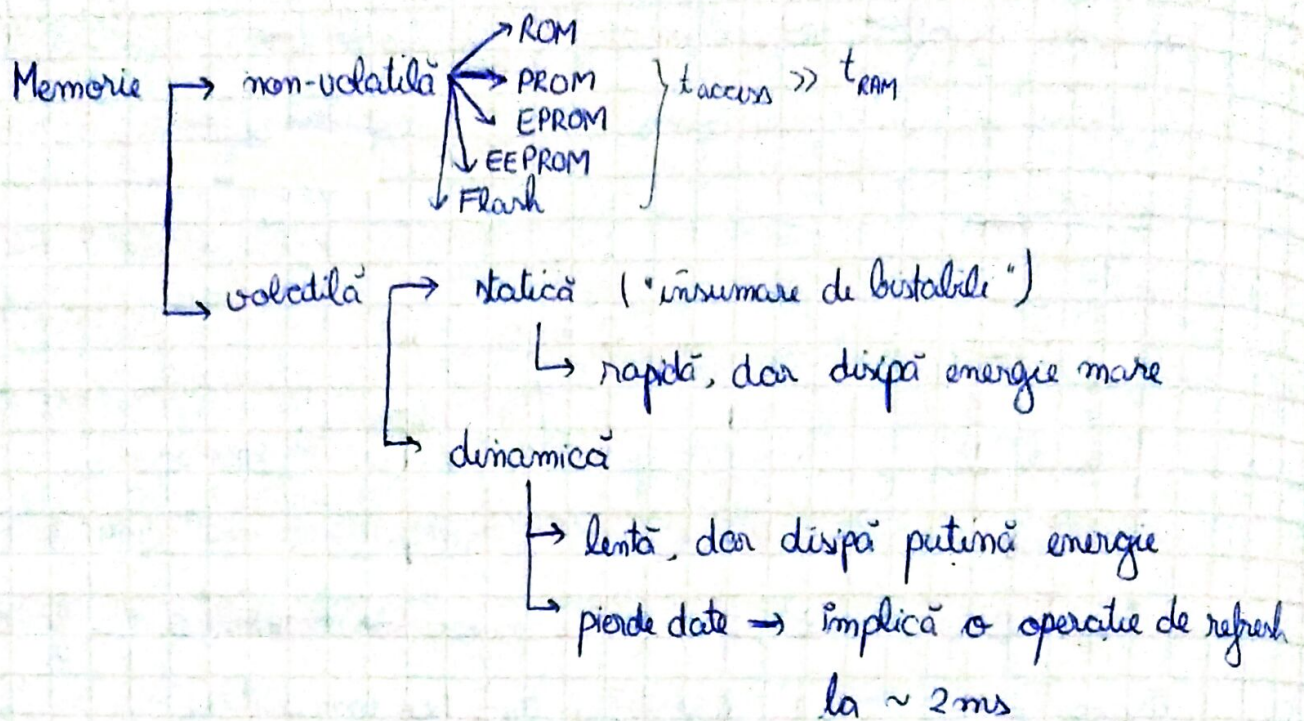 → ROM
Memorie → non-volatilă → PROM } t access >> t RAM
→ EPROM
→ EEPROM
→ Flash
→ volatilă → statică ("însumare de bistabili")
→ rapidă, dar disipă energie mare
→ dinamică
→ lentă, dar disipă puțină energie
→ pierde date → implică o operație de refresh
la ~ 2 ms